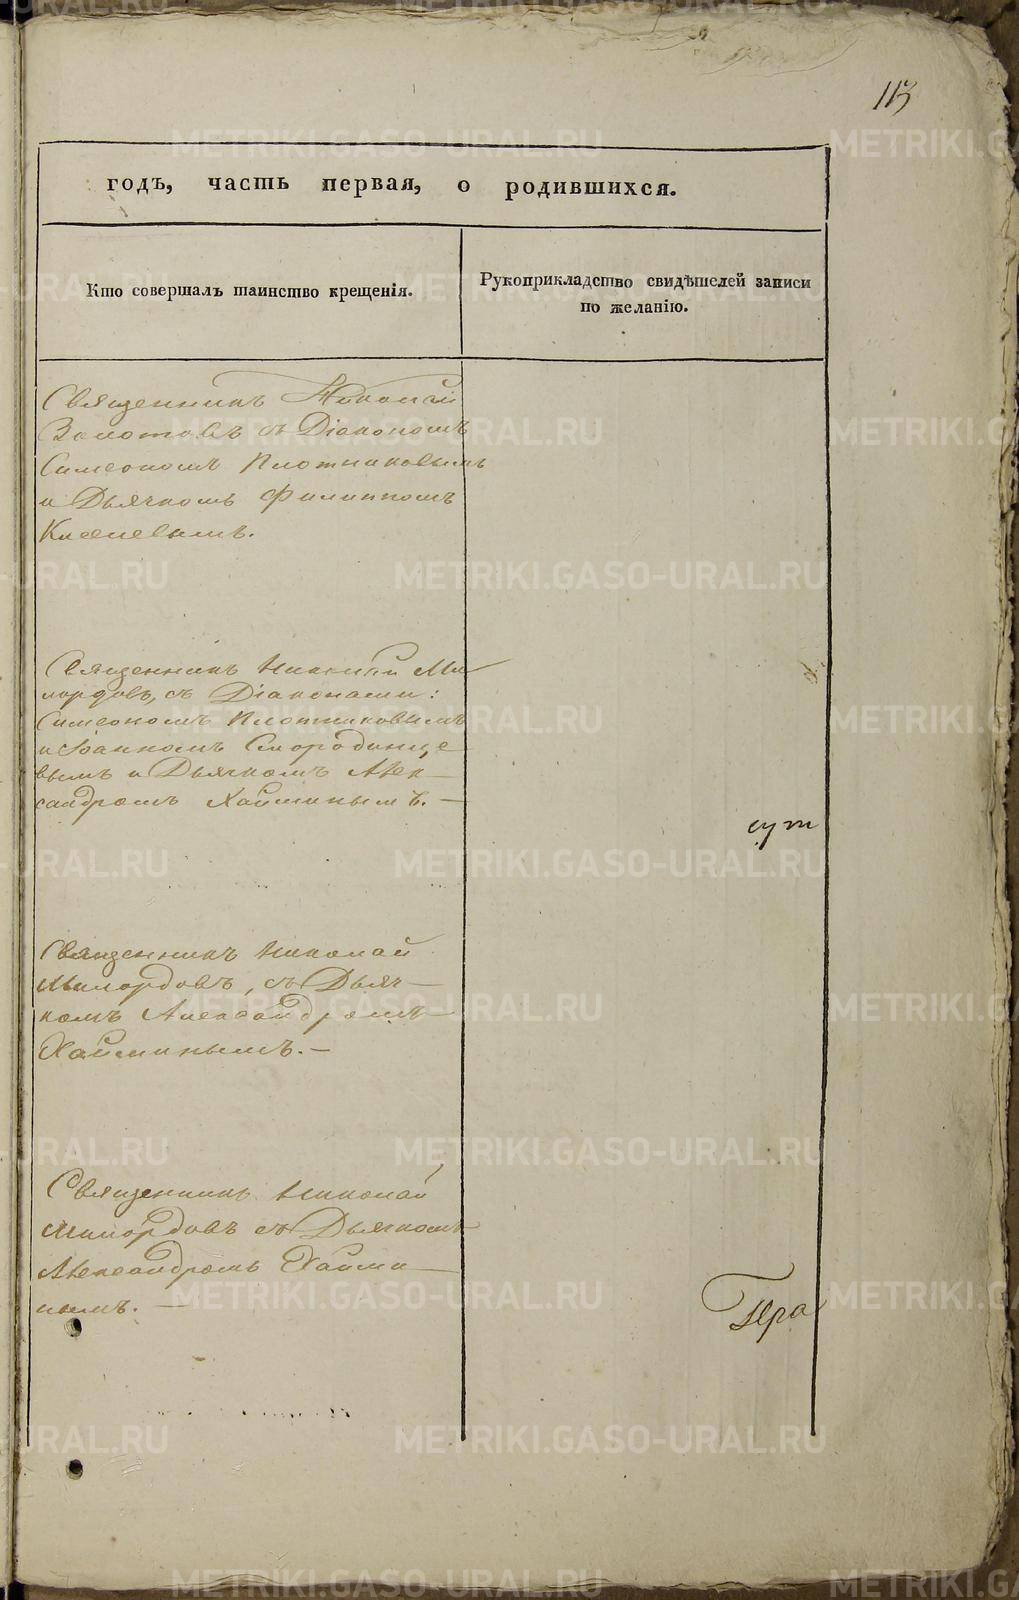 113
годъ, часть первая, о родившихся.
Кто совершалъ таинство крещенія.
Рукоприкладство свидѣтелей записи
по желанію.
Священникъ Николай
Золотовъ съ Діакономъ
Симеономъ Плотниковымъ
и Дьячкомъ Филиппомъ
Киселевымъ.
Священникъ Николай Ми
лордовъ, съ Діаконами:
Симеономъ Плотниковымъ
и Іоанномъ Смородинце
вымъ и Дьячкомъ Алек-
сандромъ Хайминымъ. —
сут
Священникъ Николай
Милордовъ, съ Дьяч-
комъ Александромъ
Хайминымъ. —
Священникъ Николай
Милордовъ съ Дьячкомъ
Александромъ Хайми-
нымъ. —
Пра
METRIKI.GASO-URAL.RU